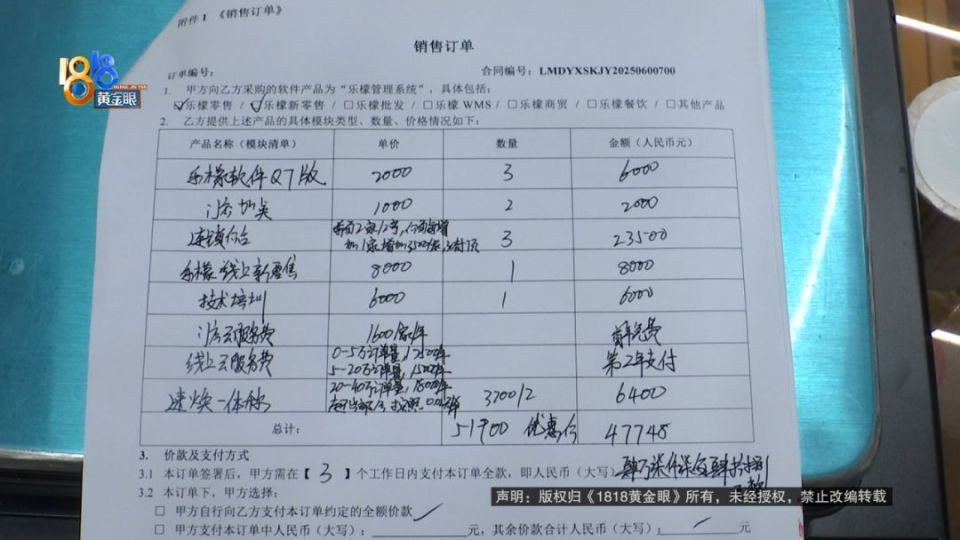 附件1 《销售订单》
1818
黄金眼
销售订单
订单编号： 合同编号：LMDYXSKJY20250600700
1. 甲方向乙方采购的软件产品为“乐檬管理系统”，具体包括：
☑乐檬零售 / ☑乐檬新零售 / □乐檬批发 / □乐檬 WMS / □乐檬商贸 / □乐檬餐饮 / □其他产品
2. 乙方提供上述产品的具体模块类型、数量、价格情况如下：
产品名称（模块清单） 单价 数量 金额（人民币元）
乐檬软件Q7版 2000 3 6000
门店加点 1000 2 2000
连锁 3 23500
乐檬线上新零售 8000 1 8000
技术培训 6000 1 6000
门店云服务费 1600 首年免费
线上云服务费 0-5万订单量，1200/年 第2年支付
5-20万订单量，1500/年
20-40万订单量，1800/年
一体称 3200/2 6400
总计： 51900 优惠价 47748
3. 价款及支付方式
3.1 本订单签署后，甲方需在【 3 】个工作日内支付本订单全款，即人民币（大写）肆万柒仟柒佰肆拾捌
3.2 本订单下，甲方选择：
□ 甲方自行向乙方支付本订单约定的全额价款
□ 甲方支付本订单中人民币（大写）： 元，其余价款合计人民币（大写）： 元
声明：版权归《1818黄金眼》所有，未经授权，禁止改编转载